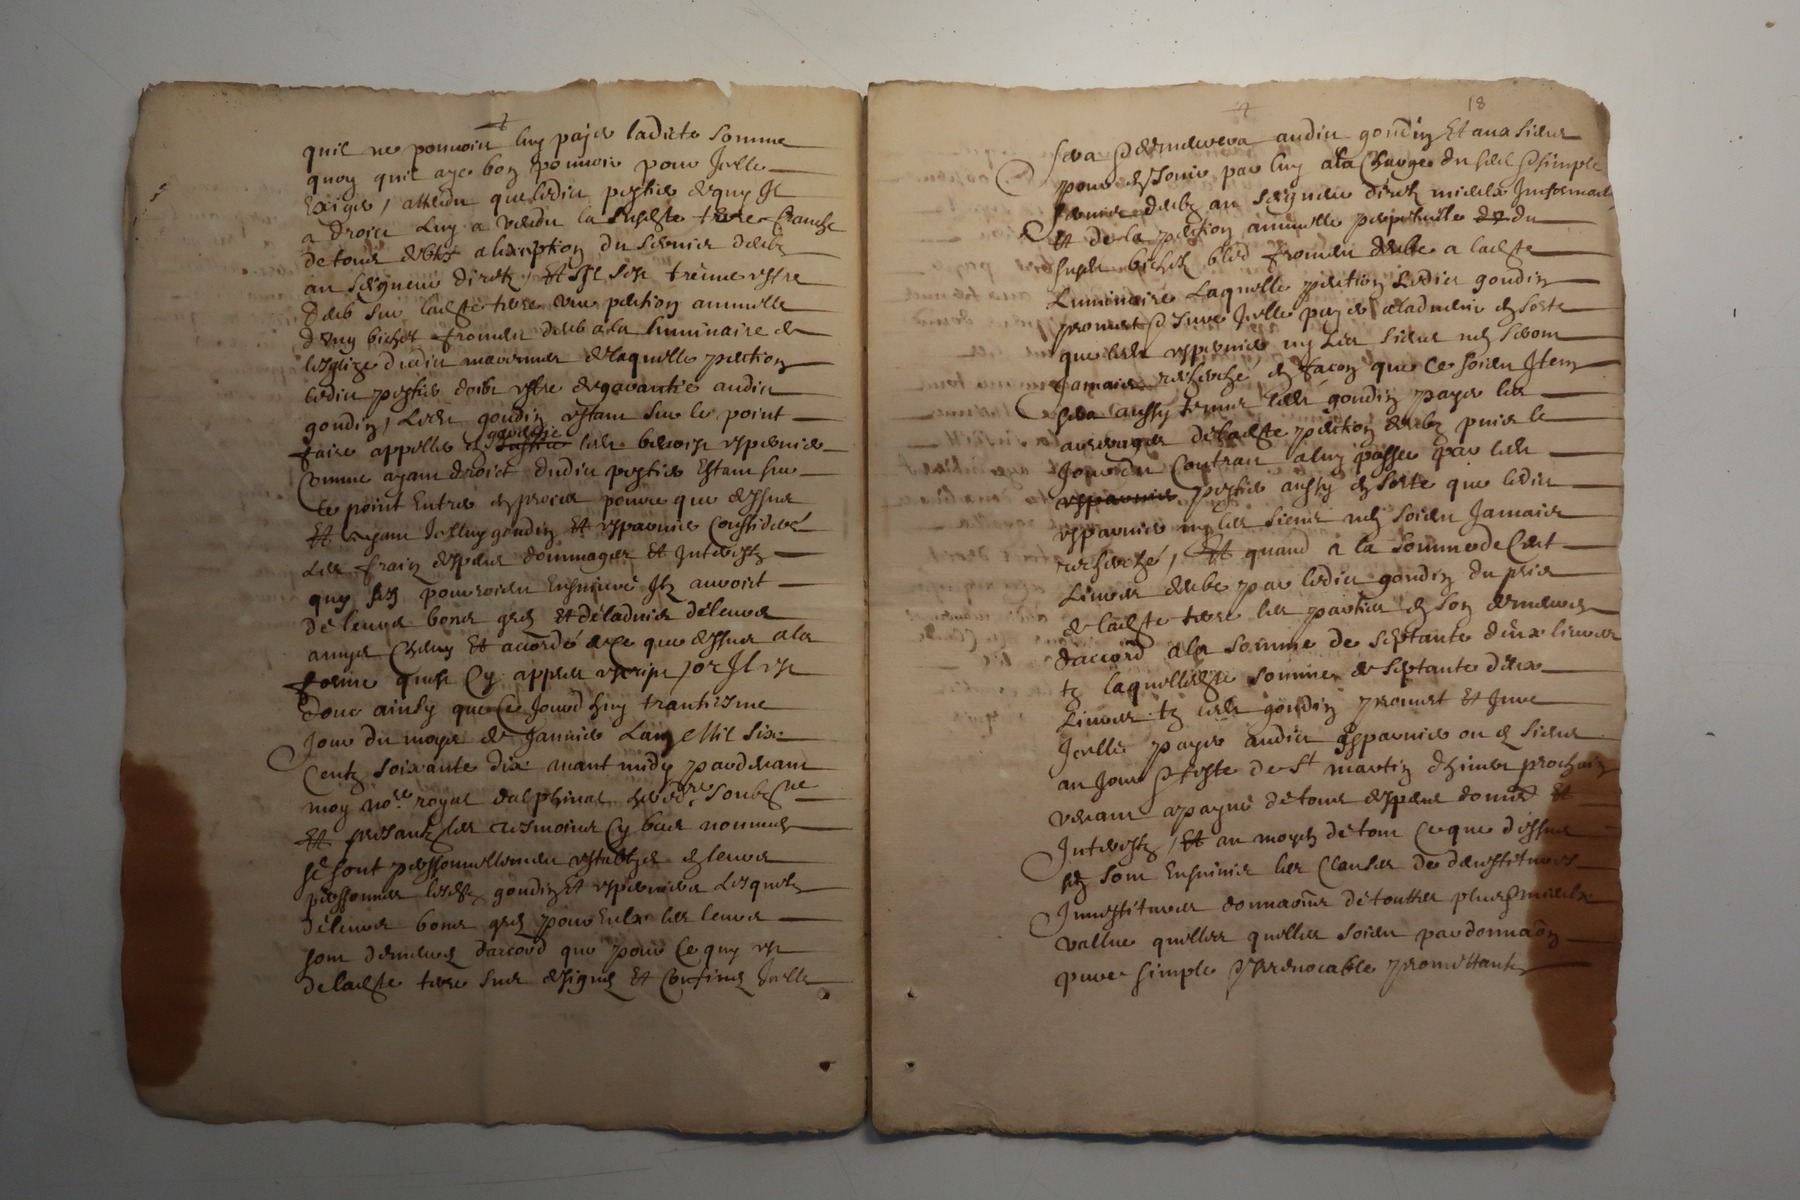 quil ne pouvoict luy payer ladicte somme
quoy quil aye bon pouvoir pour Icelle
Exiger / attendu que ledict pestier de quy Il
a droict luy a vendu la susdicte terre franche
de tous debtz a lexception du servis deub
au seigneur direct / Et Il se treuve estre
deub sur ladicte terre une pention annuelle
dung bichet froment deub a la luminaire de
lesglize dudict de laquelle pention
ledict pestier doibt estre de garantie audict
goudin / Ledict goudin estant sur le point
faire appeller en garantie ledict esparvier
comme ayant droict dudict pestier Estant sur
le point Entrer en proces pour ce que dessus
Et ayant Icelluy goudin Et esparvier Consideré
Les fraiz despens dommages Et Interestz
quy sen pourroient Ensuivre Ilz auroict
de leurs bons grez Et de ladvis de leurs
amys Et accordé de ce que dessus a la
forme quest Cy appres escript / or Il est
donc ainsy que Ce Jourdhuy trantiesme
Jour du moys de Janvier Lan Mil Six
Centz soixante dix avant midy pardevant
moy no.re royal dalphinal soubz.ne
Et presantz les tesmoins Cy bas nommes
se sont personnellement establys en leurs
personnes lesdictz goudin Et esparvier Lesquelz
de leurs bons grez pour Eulx les leurs
sont demeurez daccord que pour Ce quy est
de ladicte terre sus designee Et Confinee Icelle
4 18
sera demeurera audict goudin Et aux siens
pour en Jouir par luy a la Charge du simple
servis deub au seigneur direct
Et de la pention annuelle perpetuelle du
susdict bichet bled froment deube a ladicte
Luminaire Laquelle pention Ledict goudin
promet Jure Icelle payer a ladvenir en sorte
que ledict esparvier ny les siens nen seront
Jamais recherché en facon que ce soict Item
sera aussy tenu ledict goudin payer les
arreyrages de ladicte pention deubz puis le
Jour du Contract a luy passé par ledict
esparvier pestier aussy en sorte que ledict
esparvier ny les siens nen soient Jamais
recherché / Et quand a la somme de Cent
Livres deube par ledict goudin du prix
de ladicte terre les parties en son demeurez
daccord a la somme de septante deux livres
tz laquelle somme de septante deux
Livres tz ledict goudin promet Et Jure
Icelle payer audict esparvier ou en siens
au Jour feste de St martin dhiver prochain
venant a payne de tous despens dommages Et
Interestz / Et au moyen de tout Ce que dessus
se sont Ensuivies les Clauses de devestitures
Investitures donnation de touttes plus
vallue quelles quelles soient par donnation
pure simple Irrevocable promettantz